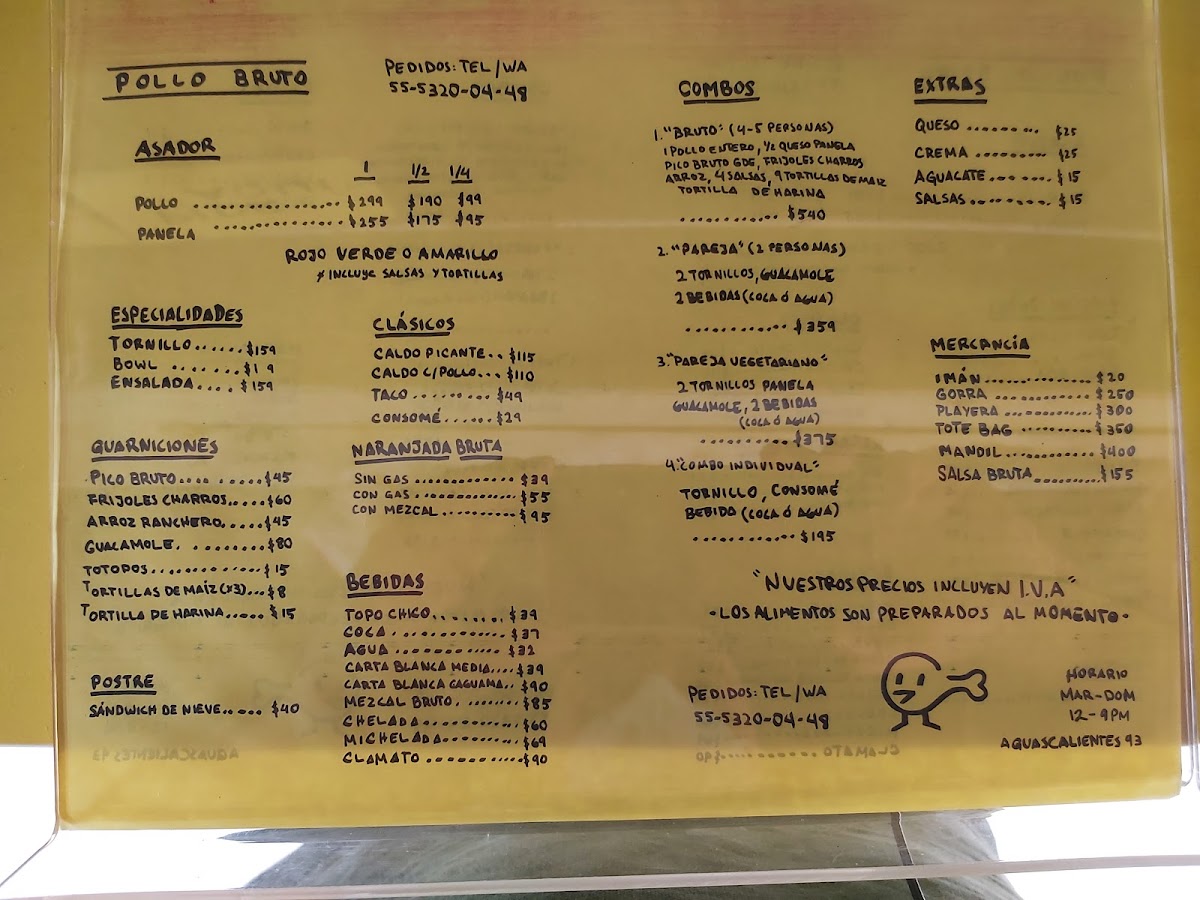 POLLO BRUTO
PEDIDOS: TEL/WA
55-5320-04-48
ASADOR
1 1/2 1/4
POLLO .................... $299 $190 $99
PANELA .................... $255 $175 $95
ROJO VERDE O AMARILLO
* INCLUYE SALSAS Y TORTILLAS
ESPECIALIDADES
TORNILLO...... $159
BOWL .......
ENSALADA.... $159
GUARNICIONES
PICO BRUTO.... ..... $45
FRIJOLES CHARROS..... $60
ARROZ RANCHERO..... $45
GUACAMOLE. ........ $80
TOTOPOS............. $15
TORTILLAS DE MAÍZ (x3)... $8
TORTILLA DE HARINA..... $15
POSTRE
SÁNDWICH DE NIEVE..... $40
CLÁSICOS
CALDO PICANTE.. $115
CALDO C/POLLO... $110
TACO .......... $49
CONSOMÉ...... $29
NARANJADA BRUTA
SIN GAS ............. $39
CON GAS ............. $55
CON MEZCAL .......... $95
BEBIDAS
TOPO CHICO........ $39
COCA ............. $37
AGUA ............. $32
CARTA BLANCA MEDIA.... $39
CARTA BLANCA CAGUAMA.. $90
MEZCAL BRUTO. ....... $85
CHELADA........... $60
MICHELADA.......... $69
CLAMATO ............ $90
COMBOS
1. "BRUTO" (4-5 PERSONAS)
1 POLLO ENTERO, 1/2 QUESO PANELA
PICO BRUTO GDE, FRIJOLES CHARROS
ARROZ, 4 SALSAS, 9 TORTILLAS DE MAIZ
TORTILLA DE HARINA
........... $540
2. "PAREJA" (2 PERSONAS)
2 TORNILLOS, GUACAMOLE
2 BEBIDAS (COCA Ó AGUA)
............ $359
3. "PAREJA VEGETARIANO"
2 TORNILLOS PANELA
GUACAMOLE, 2 BEBIDAS
(COCA Ó AGUA)
........... $375
4. "COMBO INDIVIDUAL"
TORNILLO, CONSOMÉ
BEBIDA (COCA Ó AGUA)
............ $195
EXTRAS
QUESO ......... $25
CREMA ......... $25
AGUACATE ....... $15
SALSAS ......... $15
MERCANCÍA
IMÁN ............... $20
GORRA .............. $250
PLAYERA ............ $300
TOTE BAG ........... $350
MANDIL ............ $400
SALSA BRUTA .......... $155
"NUESTROS PRECIOS INCLUYEN I.V.A"
·LOS ALIMENTOS SON PREPARADOS AL MOMENTO·
PEDIDOS: TEL/WA
55-5320-04-48
HORARIO
MAR-DOM
12-9PM
AGUASCALIENTES 93